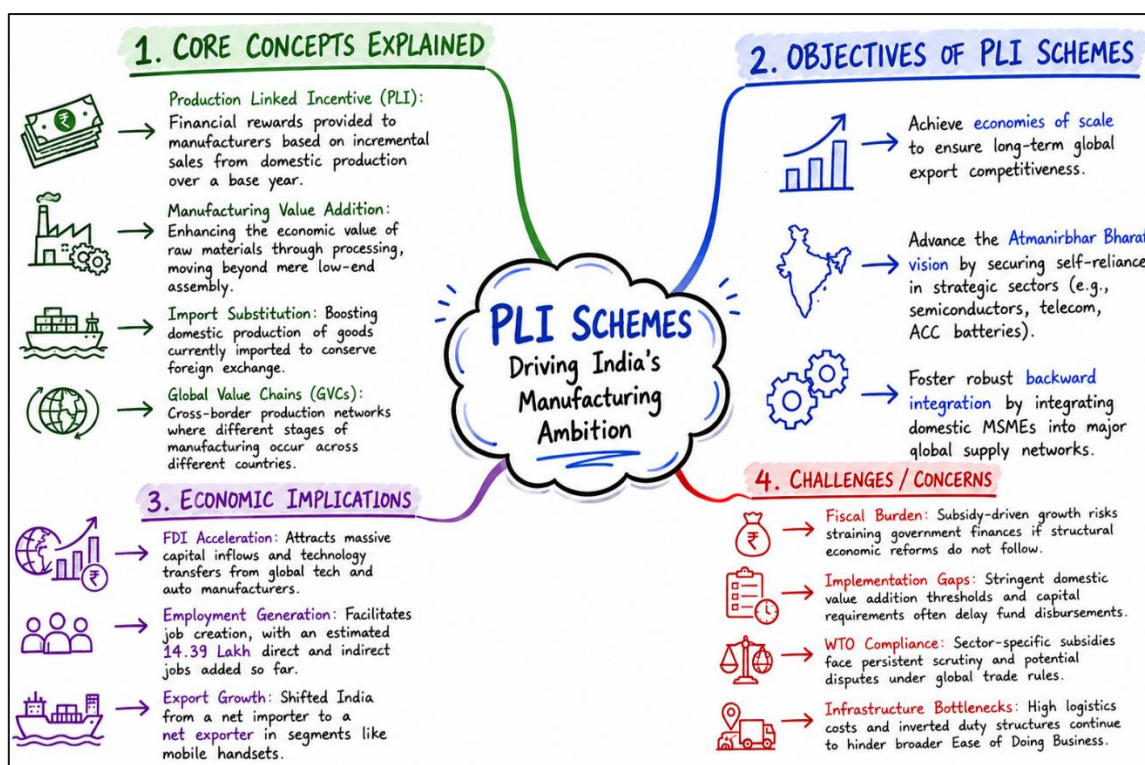 1. CORE CONCEPTS EXPLAINED
Production Linked Incentive (PLI):
Financial rewards provided to
manufacturers based on incremental
sales from domestic production
over a base year.
Manufacturing Value Addition:
Enhancing the economic value of
raw materials through processing,
moving beyond mere low-end
assembly.
Import Substitution: Boosting
domestic production of goods
currently imported to conserve
foreign exchange.
Global Value Chains (GVCs):
Cross-border production networks
where different stages of
manufacturing occur across
different countries.
2. OBJECTIVES OF PLI SCHEMES
Achieve economies of scale
to ensure long-term global
export competitiveness.
Advance the Atmanirbhar Bharat
vision by securing self-reliance
in strategic sectors (e.g.,
semiconductors, telecom,
ACC batteries).
Foster robust backward
integration by integrating
domestic MSMEs into major
global supply networks.
PLI SCHEMES
Driving India's
Manufacturing
Ambition
3. ECONOMIC IMPLICATIONS
FDI Acceleration: Attracts massive
capital inflows and technology
transfers from global tech and
auto manufacturers.
Employment Generation: Facilitates
job creation, with an estimated
14.39 Lakh direct and indirect
jobs added so far.
Export Growth: Shifted India
from a net importer to a
net exporter in segments like
mobile handsets.
4. CHALLENGES / CONCERNS
Fiscal Burden: Subsidy-driven growth risks
straining government finances if structural
economic reforms do not follow.
Implementation Gaps: Stringent domestic
value addition thresholds and capital
requirements often delay fund disbursements.
WTO Compliance: Sector-specific subsidies
face persistent scrutiny and potential
disputes under global trade rules.
Infrastructure Bottlenecks: High logistics
costs and inverted duty structures continue
to hinder broader Ease of Doing Business.
₹
₹
₹